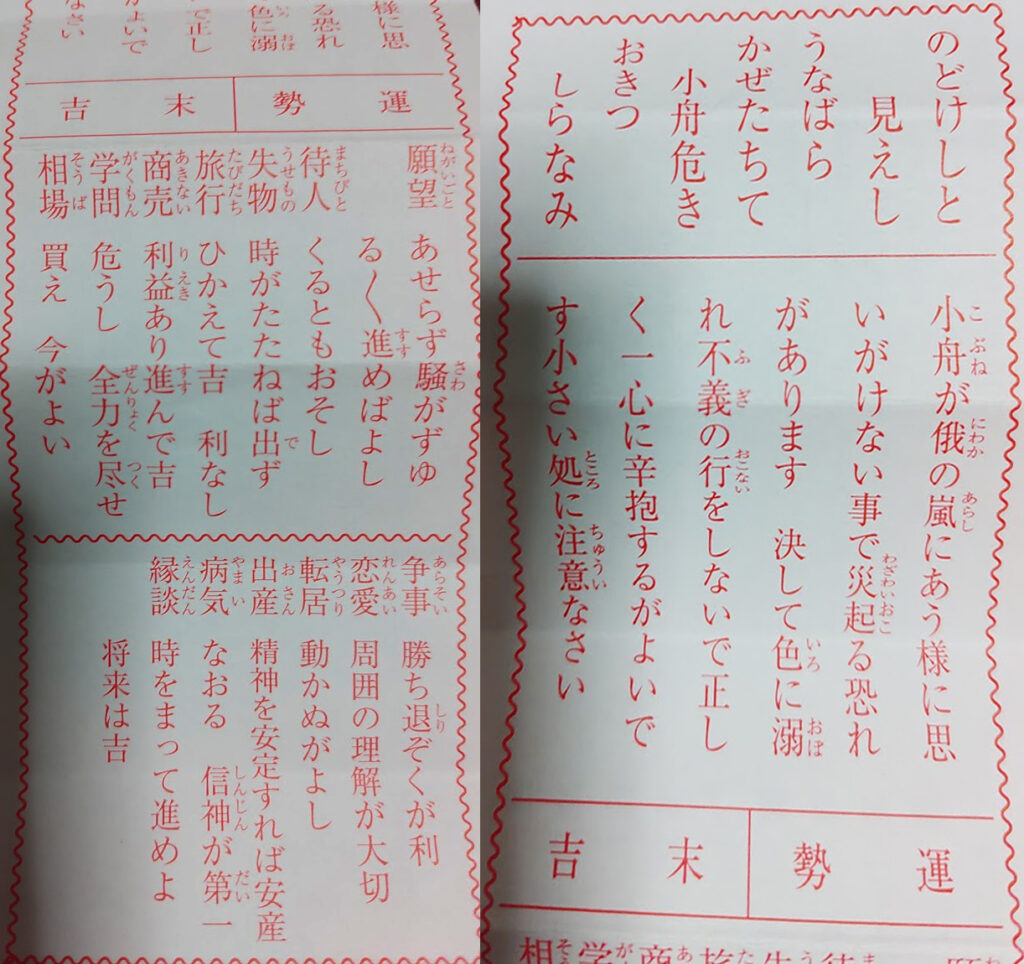 のどけしと
見えし
うなばら
かぜたちて
小舟危き
おきつ
しらなみ
小舟が俄の嵐にあう様に思
いがけない事で災起る恐れ
があります　決して色に溺
れ不義の行をしないで正し
く一心に辛抱するがよいで
す小さい処に注意なさい
運勢　末吉
様に思
る恐れ
色に溺
で正し
よいで
なさい
運勢　末吉
願望　あせらず騒がずゆ
る〱進めばよし
待人　くるともおそし
失物　時がたたねば出ず
旅行　ひかえて吉　利なし
商売　利益あり進んで吉
学問　危うし　全力を尽せ
相場　買え　今がよい
争事　勝ち退ぞくが利
恋愛　周囲の理解が大切
転居　動かぬがよし
出産　精神を安定すれば安産
病気　なおる　信神が第一
縁談　時をまって進めよ
将来は吉